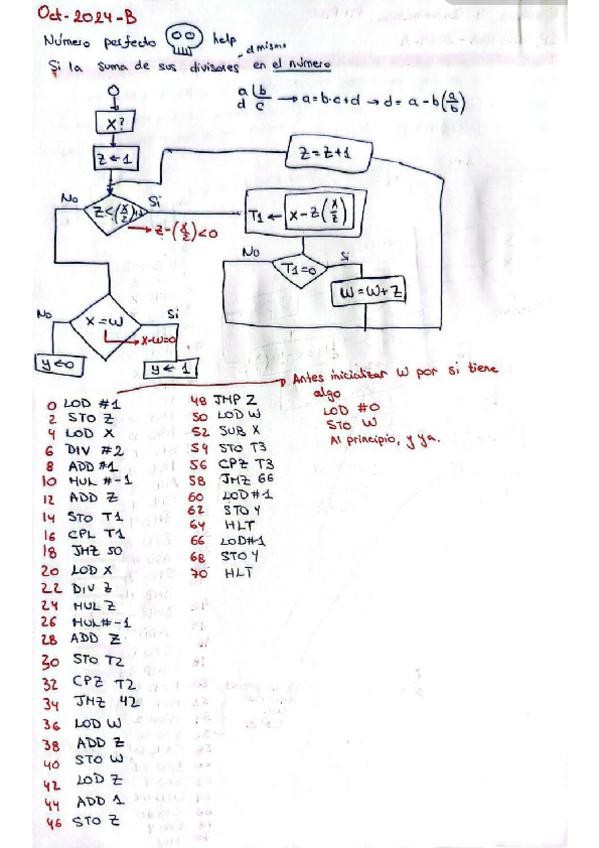 Oct-2024-B
Número perfecto help
d mismo
Si la suma de sus divisores en el número
a b
d c → a=b·c+d → d= a-b(a/b)
X?
Z ← 1
Z=Z+1
No Si
Z<(X/2)+1
→ Z-(X/2)<0
T1 ← X-Z(X/Z)
No Si
T1=0
W=W+Z
No Si
X=W
→ X-W=0
y←0
y ← 1
Antes inicializar W por si tiene
algo
LOD #0
STO W
Al principio, y ya.
0 LOD #1
2 STO Z
4 LOD X
6 DIV #2
8 ADD #1
10 MUL #-1
12 ADD Z
14 STO T1
16 CPL T1
18 JMZ 50
20 LOD X
22 DIV Z
24 MUL Z
26 MUL#-1
28 ADD Z
30 STO T2
32 CPZ T2
34 JMZ 42
36 LOD W
38 ADD Z
40 STO W
42 LOD Z
44 ADD 1
46 STO Z
48 JMP Z
50 LOD W
52 SUB X
54 STO T3
56 CPZ T3
58 JMZ 66
60 LOD#1
62 STO Y
64 HLT
66 LOD#1
68 STO Y
70 HLT